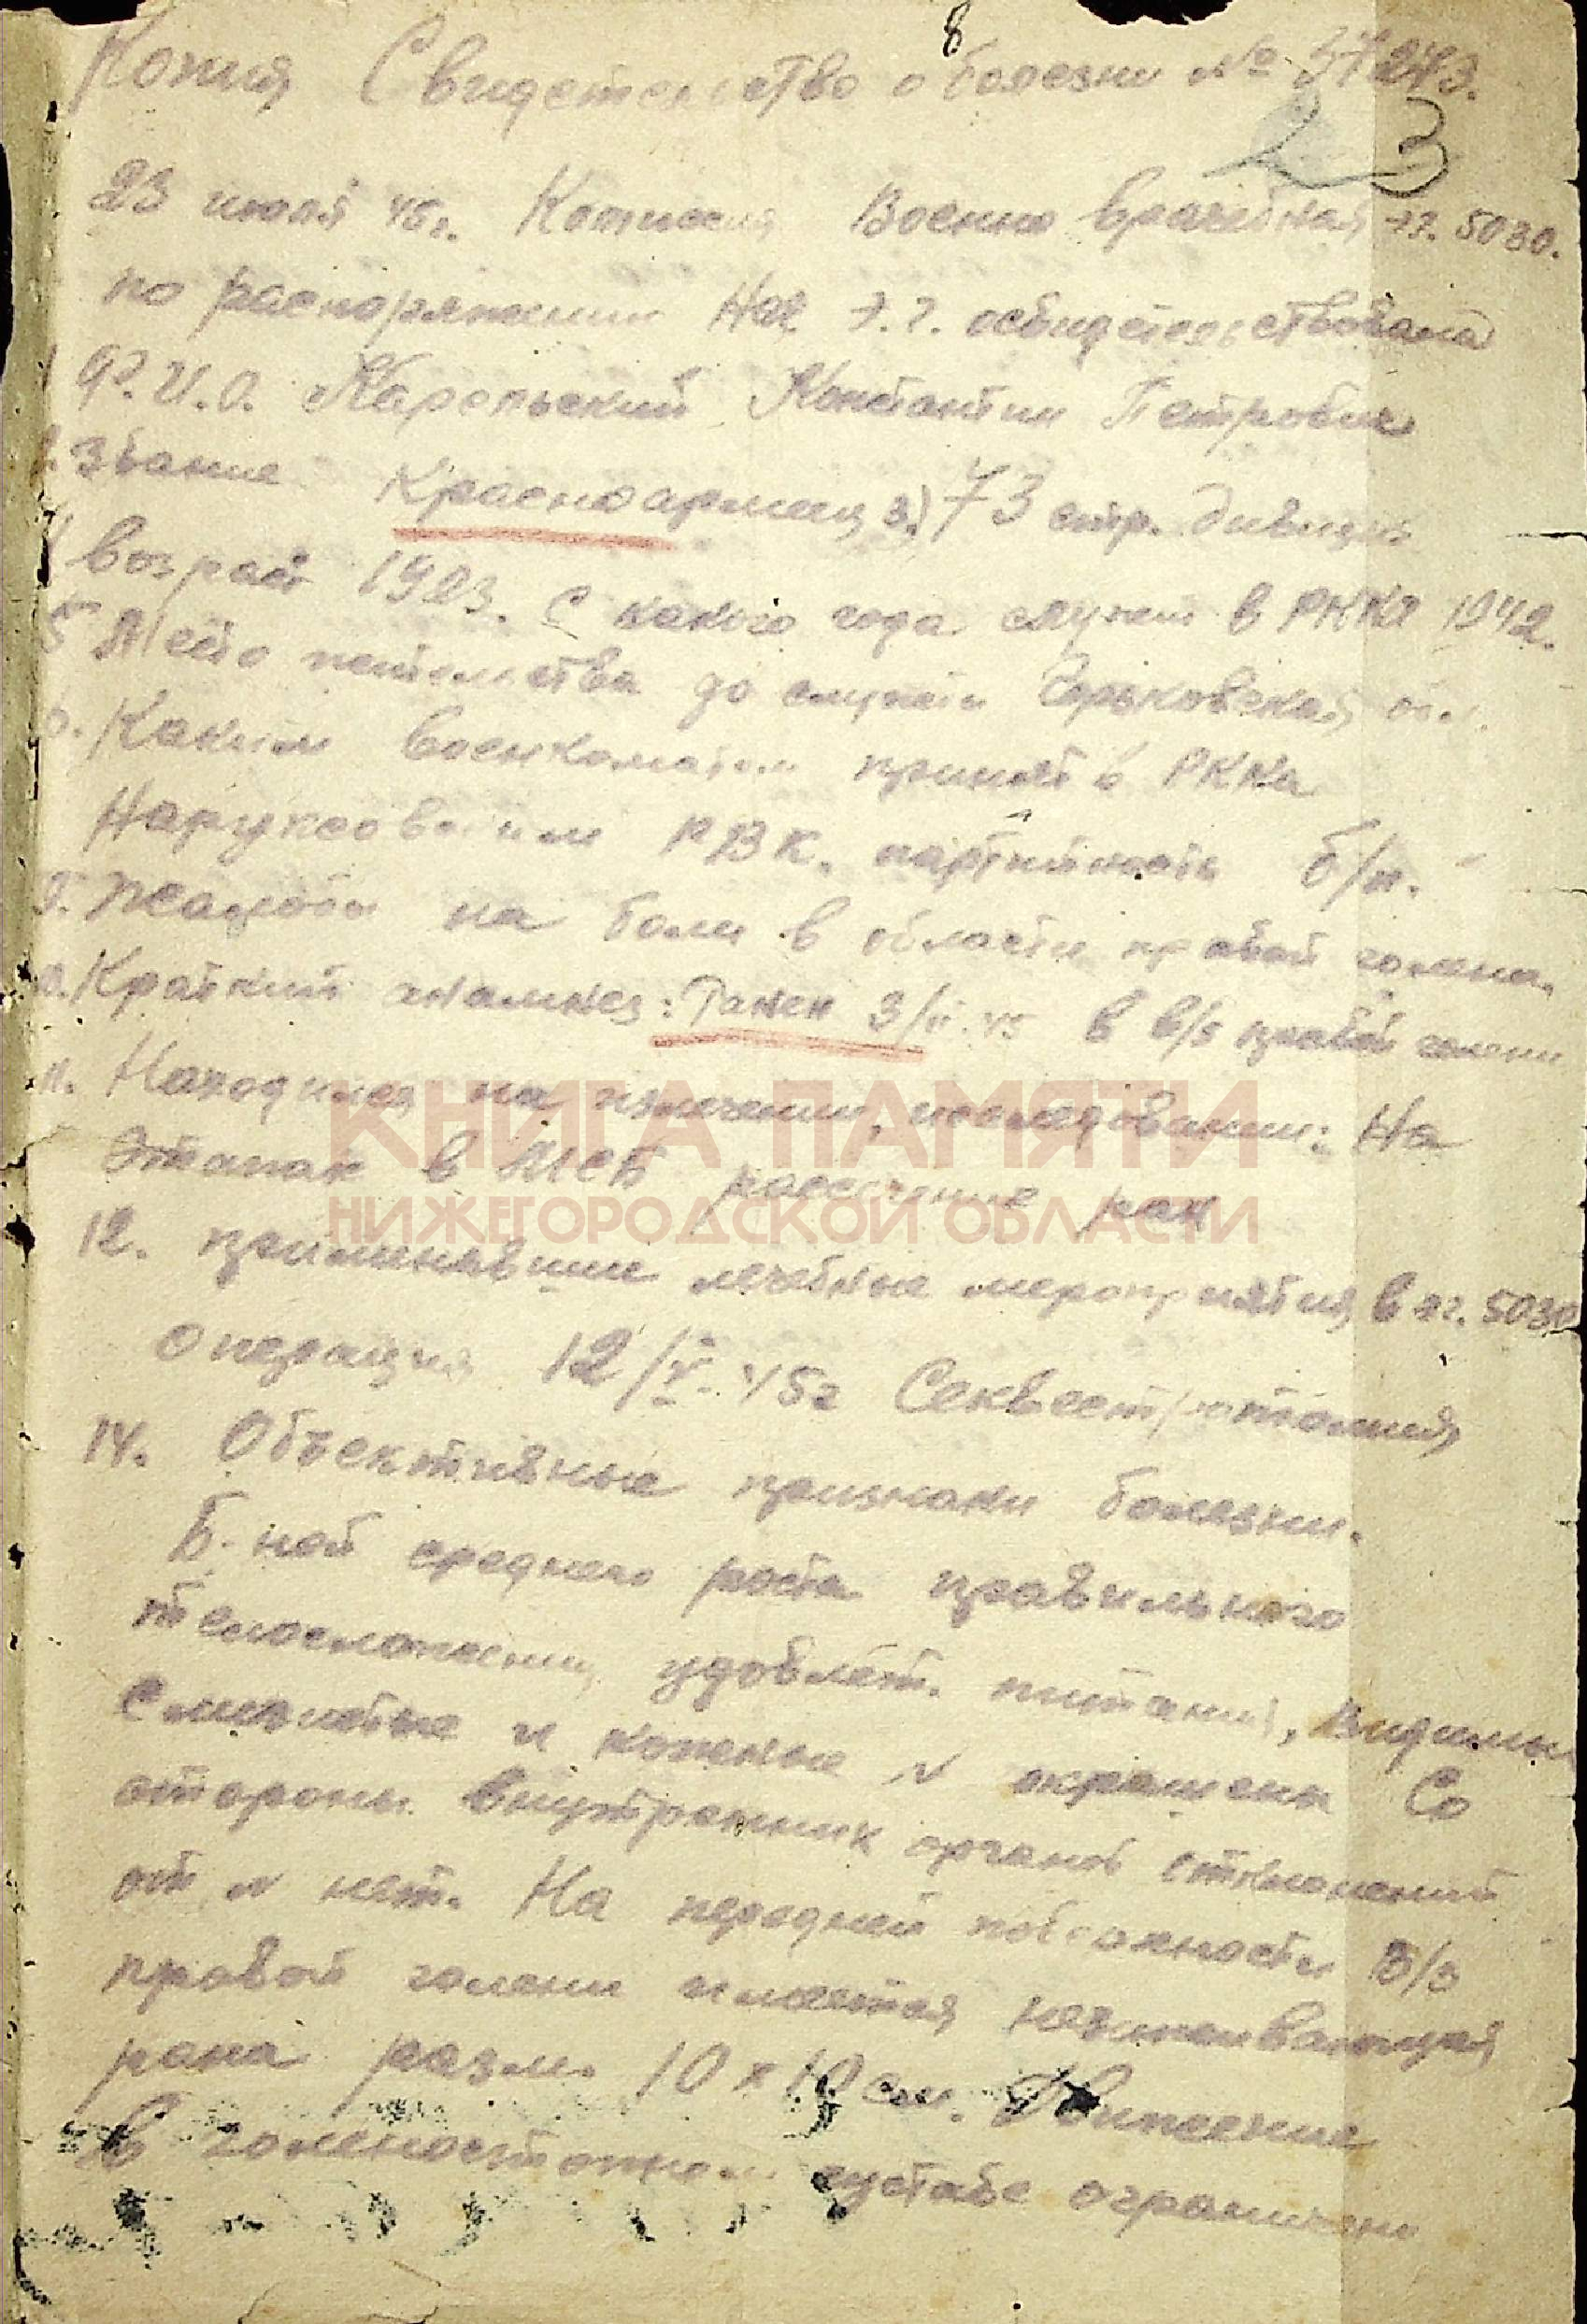 8
Копия Свидетельство о болезни № 37273.
23
23 июля 45г. Комиссия Военно врачебная эг. 5030.
по распоряжению Нач э.г. освидетельствована
1 Ф.И.О. Константин Петрович
2. Звание Красноармеец 3.) 73 стр. дивизия
4 возраст 1923. С какого года служит в РККА 1942.
5 Место жительства до службы Горьковская обл.
6. Каким военкоматом принят в РККА
Наруксовским РВК. партийность б/п.
Жалобы на боли в области правой голени.
Краткий анамнез: Ранен 3/ 45 в в/з правой голени
Находился на излечении, исследовании: На
этапах в МСБ рассечение ран
КНИГА ПАМЯТИ
НИЖЕГОРОДСКОЙ ОБЛАСТИ
12. применявшие лечебные мероприятия в эг. 5030
операция 12/V-45г Секвестротомия
14. Объективные признаки болезни.
Б-ной среднего роста правильного
телосложения, удовлет. питания, Видимы
слизистые и кожные N окрашены Со
стороны внутренних органов отклонений
от N нет. На передней поверхности В/з
правой голени имеется незаживающая
рана разм. 10 х 10 см. Движение
в голеностопном суставе ограничено